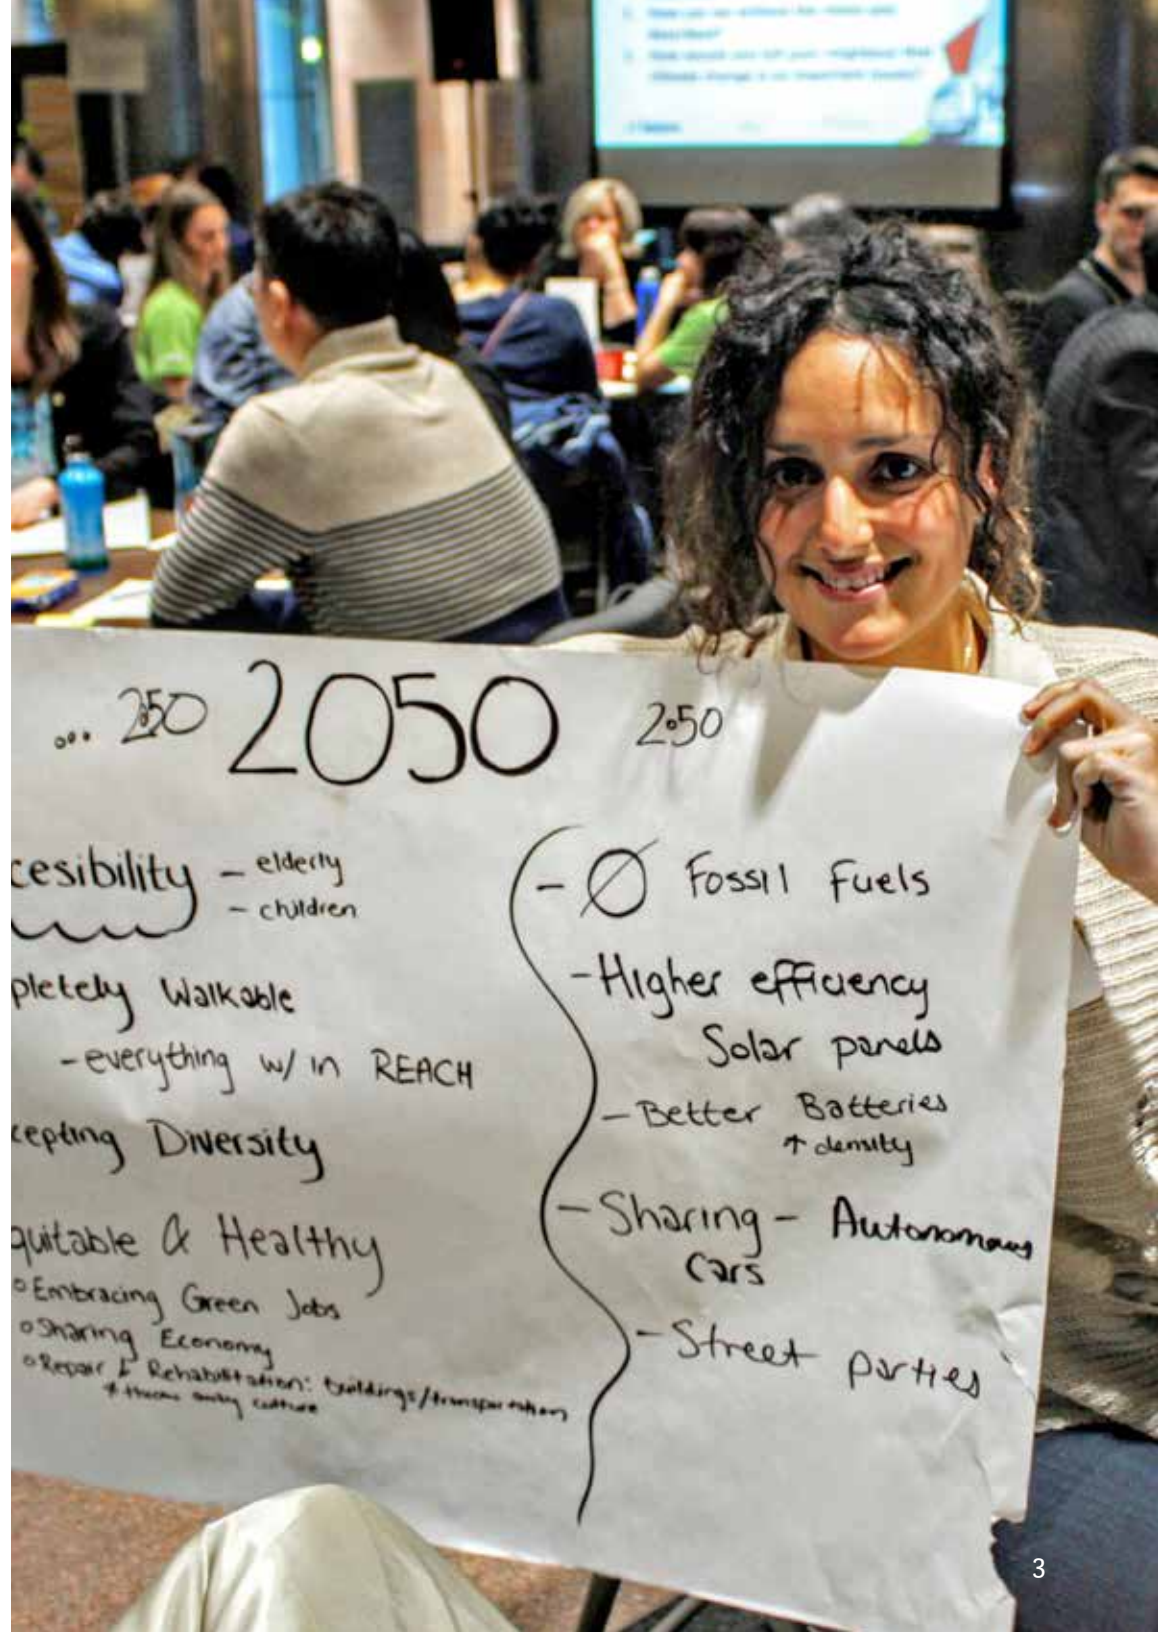 ... 2050 2050 2050
cesibility - elderly
- children
pletely Walkable
- everything w/in REACH
cepting Diversity
quitable & Healthy
o Embracing Green Jobs
o Sharing Economy
o Repair & Rehabilitation: buildings/transportation
≠ throw away culture
- Ø Fossil Fuels
- Higher efficiency
Solar panels
- Better Batteries
↑ density
- Sharing - Autonomous
Cars
- Street parties
3